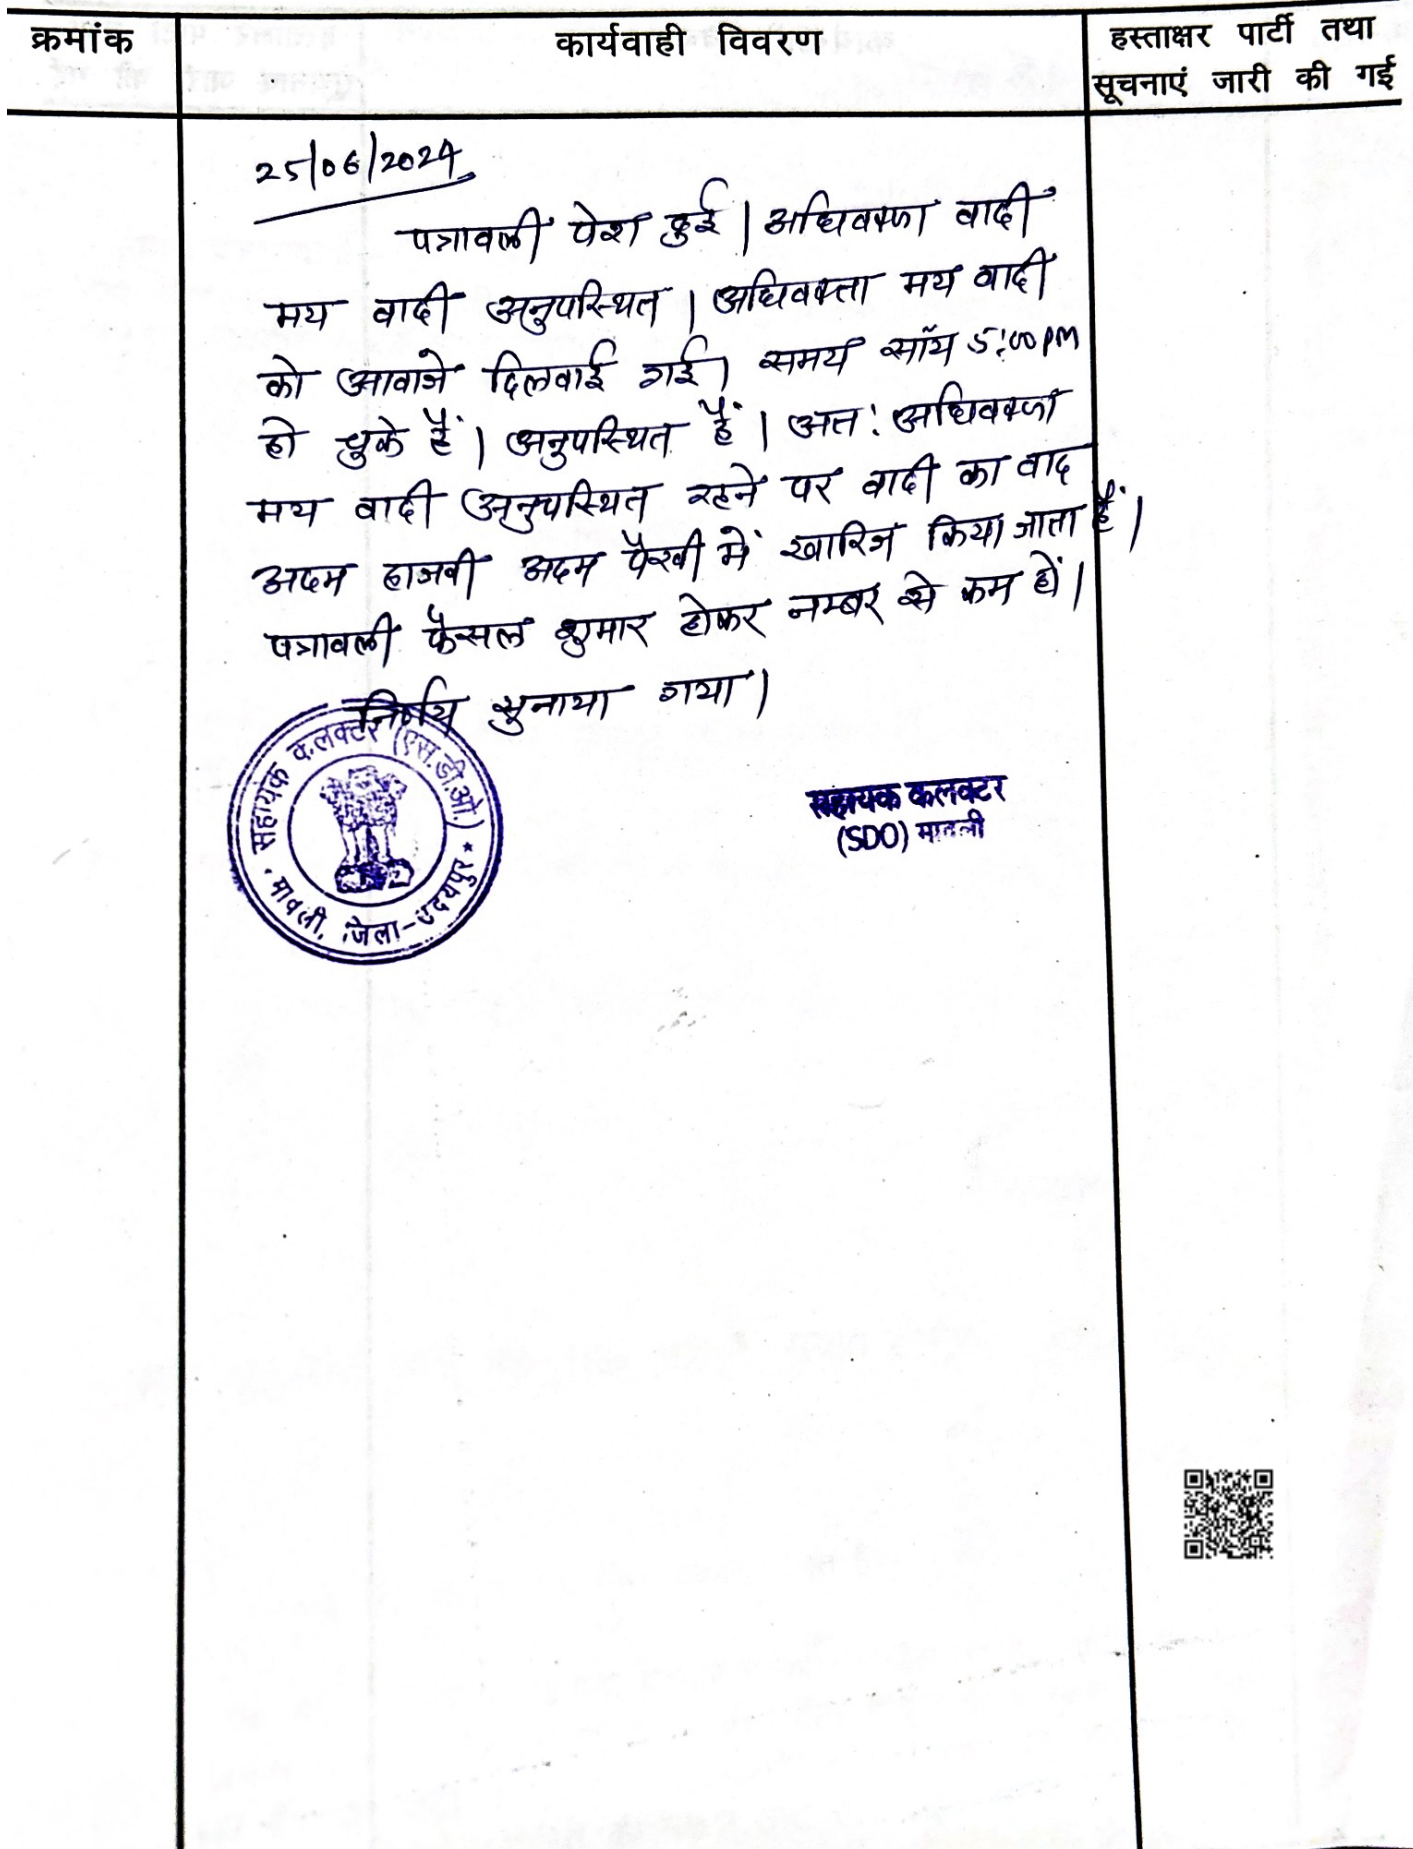 क्रमांक
कार्यवाही विवरण
हस्ताक्षर पार्टी तथा
सूचनाएं जारी की गई
25/06/2024
पत्रावली पेश हुई। अधिवक्ता वादी
मय वादी अनुपस्थित। अधिवक्ता मय वादी
को आवाजे दिलवाई गई। समय सॉय 5:00 pm
हो चुके हैं। अनुपस्थित हैं। अत: अधिवक्ता
मय वादी अनुपस्थित रहने पर वादी का वाद
अदम हाजवी अदम पैरवी में खारिज किया जाता हैं।
पत्रावली फैसल शुमार होकर नम्बर से कम हों।
निर्णय सुनाया गया।
सहायक कलक्टर (एस.डी.ओ.)
मावली, जिला-उदयपुर
सहायक कलक्टर
(SDO) मावली